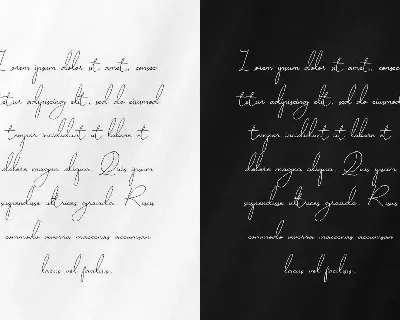 Lorem ipsum dolor sit amet, consec
tetur adipiscing elit, sed do eiusmod
tempor incididunt ut labore et
dolore magna aliqua. Quis ipsum
suspendisse ultrices gravida. Risus
commodo viverra maecenas accumsan
lacus vel facilisis.
Lorem ipsum dolor sit amet, consec
tetur adipiscing elit, sed do eiusmod
tempor incididunt ut labore et
dolore magna aliqua. Quis ipsum
suspendisse ultrices gravida. Risus
commodo viverra maecenas accumsan
lacus vel facilisis.